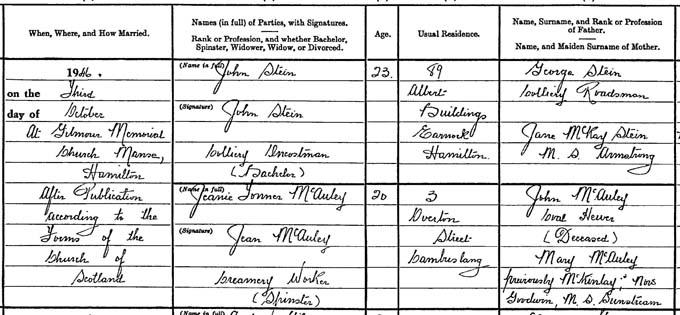 When, Where, and How Married.
Names (in full) of Parties, with Signatures.
Rank or Profession, and whether Bachelor,
Spinster, Widower, Widow, or Divorced.
Age.
Usual Residence.
Name, Surname, and Rank or Profession
of Father.
Name, and Maiden Surname of Mother.
1946.
on the Third
day of October
At Gilmour Memorial
Church Manse,
Hamilton
After Publication
according to the
Forms of the
Church of
Scotland
(Name in full) John Stein
(Signature) John Stein
Colliery Oncostman
(Bachelor)
23.
89
Albert
Buildings
Earnock
Hamilton.
George Stein
Colliery Roadsman
Jane McKay Stein
M. S. Armstrong
(Name in full) Jeanie Tonner McAuley
(Signature) Jean McAuley
Creamery Worker
(Spinster)
20
3
Overton
Street
Cambuslang
John McAuley
Coal Hewer
(Deceased)
Mary McAuley
previously McKinlay; Now
Goodwin, M. S.
(Name in full)